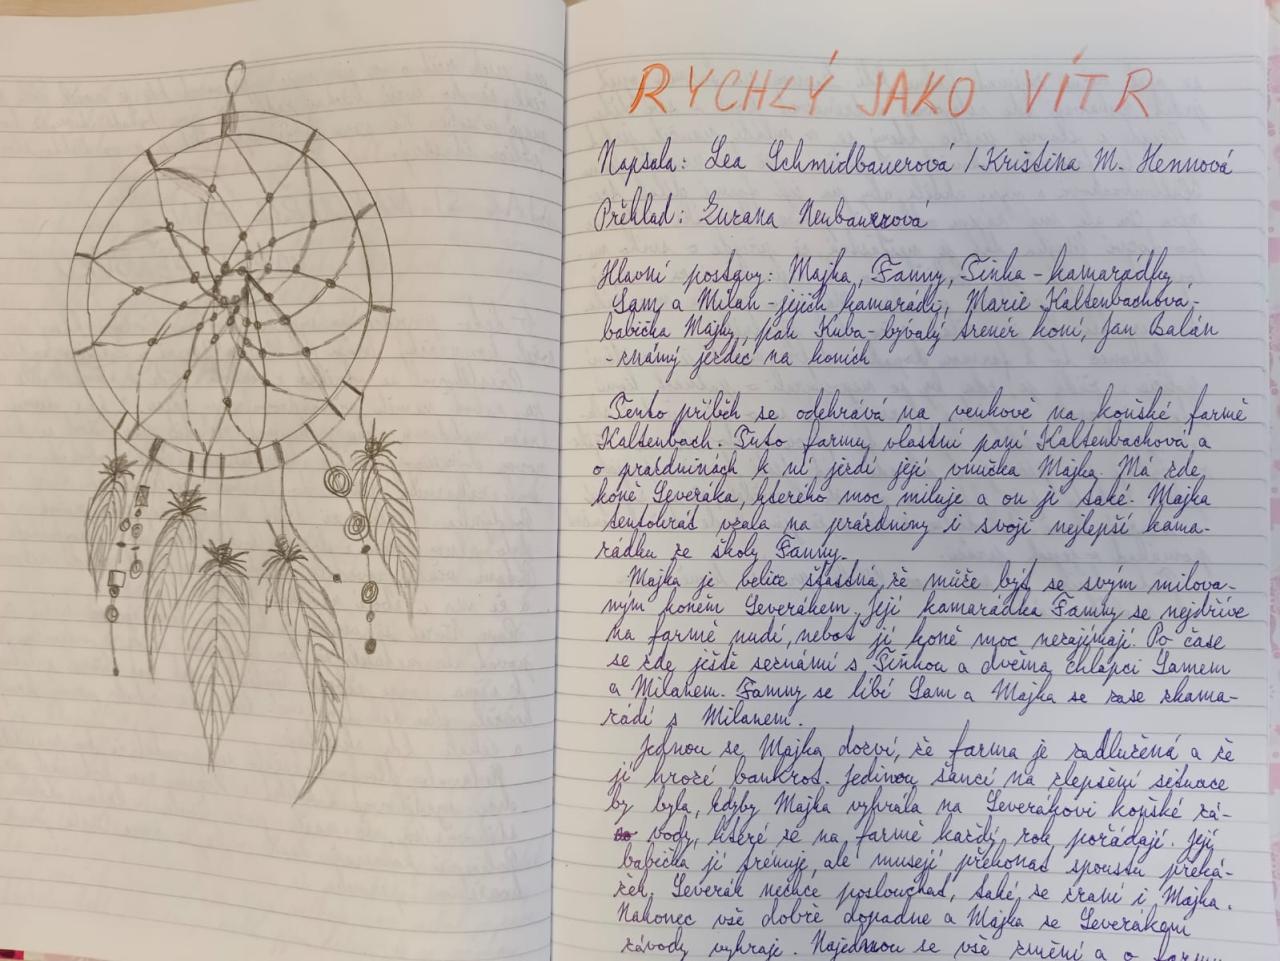 RYCHLÝ JAKO VÍTR
Napsala: Lea Schmidbauerová / Kristina M. Hennová
Překlad: Zuzana Neubauerová
Hlavní postavy: Majka, Fanny, Tinka - kamarádky
Sam a Milan - jejich kamarádi, Marie Kaltenbachová -
babička Majky, pan Kuba - bývalý trenér koní, Jan Balán
- známý jezdec na koních
Tento příběh se odehrává na venkově na koňské farmě
Kaltenbach. Tuto farmu vlastní paní Kaltenbachová a
o prázdninách k ní jezdí její vnučka Majka. Má zde
koně Severáka, kterého moc miluje a on ji také. Majka
tentokrát vzala na prázdniny i svoji nejlepší kama-
rádku ze školy Fanny.
Majka je velice šťastná, že může být se svým milova-
ným koněm Severákem, její kamarádka Fanny se nejdříve
na farmě nudí, neboť ji koně moc nezajímají. Po čase
se zde ještě seznámí s Tinkou a dvěma chlapci Samem
a Milanem. Fanny se líbí Sam a Majka se zase skama-
rádí s Milanem.
Jednou se Majka dozví, že farma je zadlužená a že
jí hrozí bankrot. Jedinou šancí na zlepšení situace
by byla, kdyby Majka vyhrála na Severákovi koňské zá-
vody, které se na farmě každý rok pořádají. Její
babička ji trénuje, ale musejí překonat spoustu překá-
žek. Severák nechce poslouchat, také se zraní i Majka.
Nakonec vše dobře dopadne a Majka se Severákem
závody vyhraje. Najednou se vše změní a o farmu